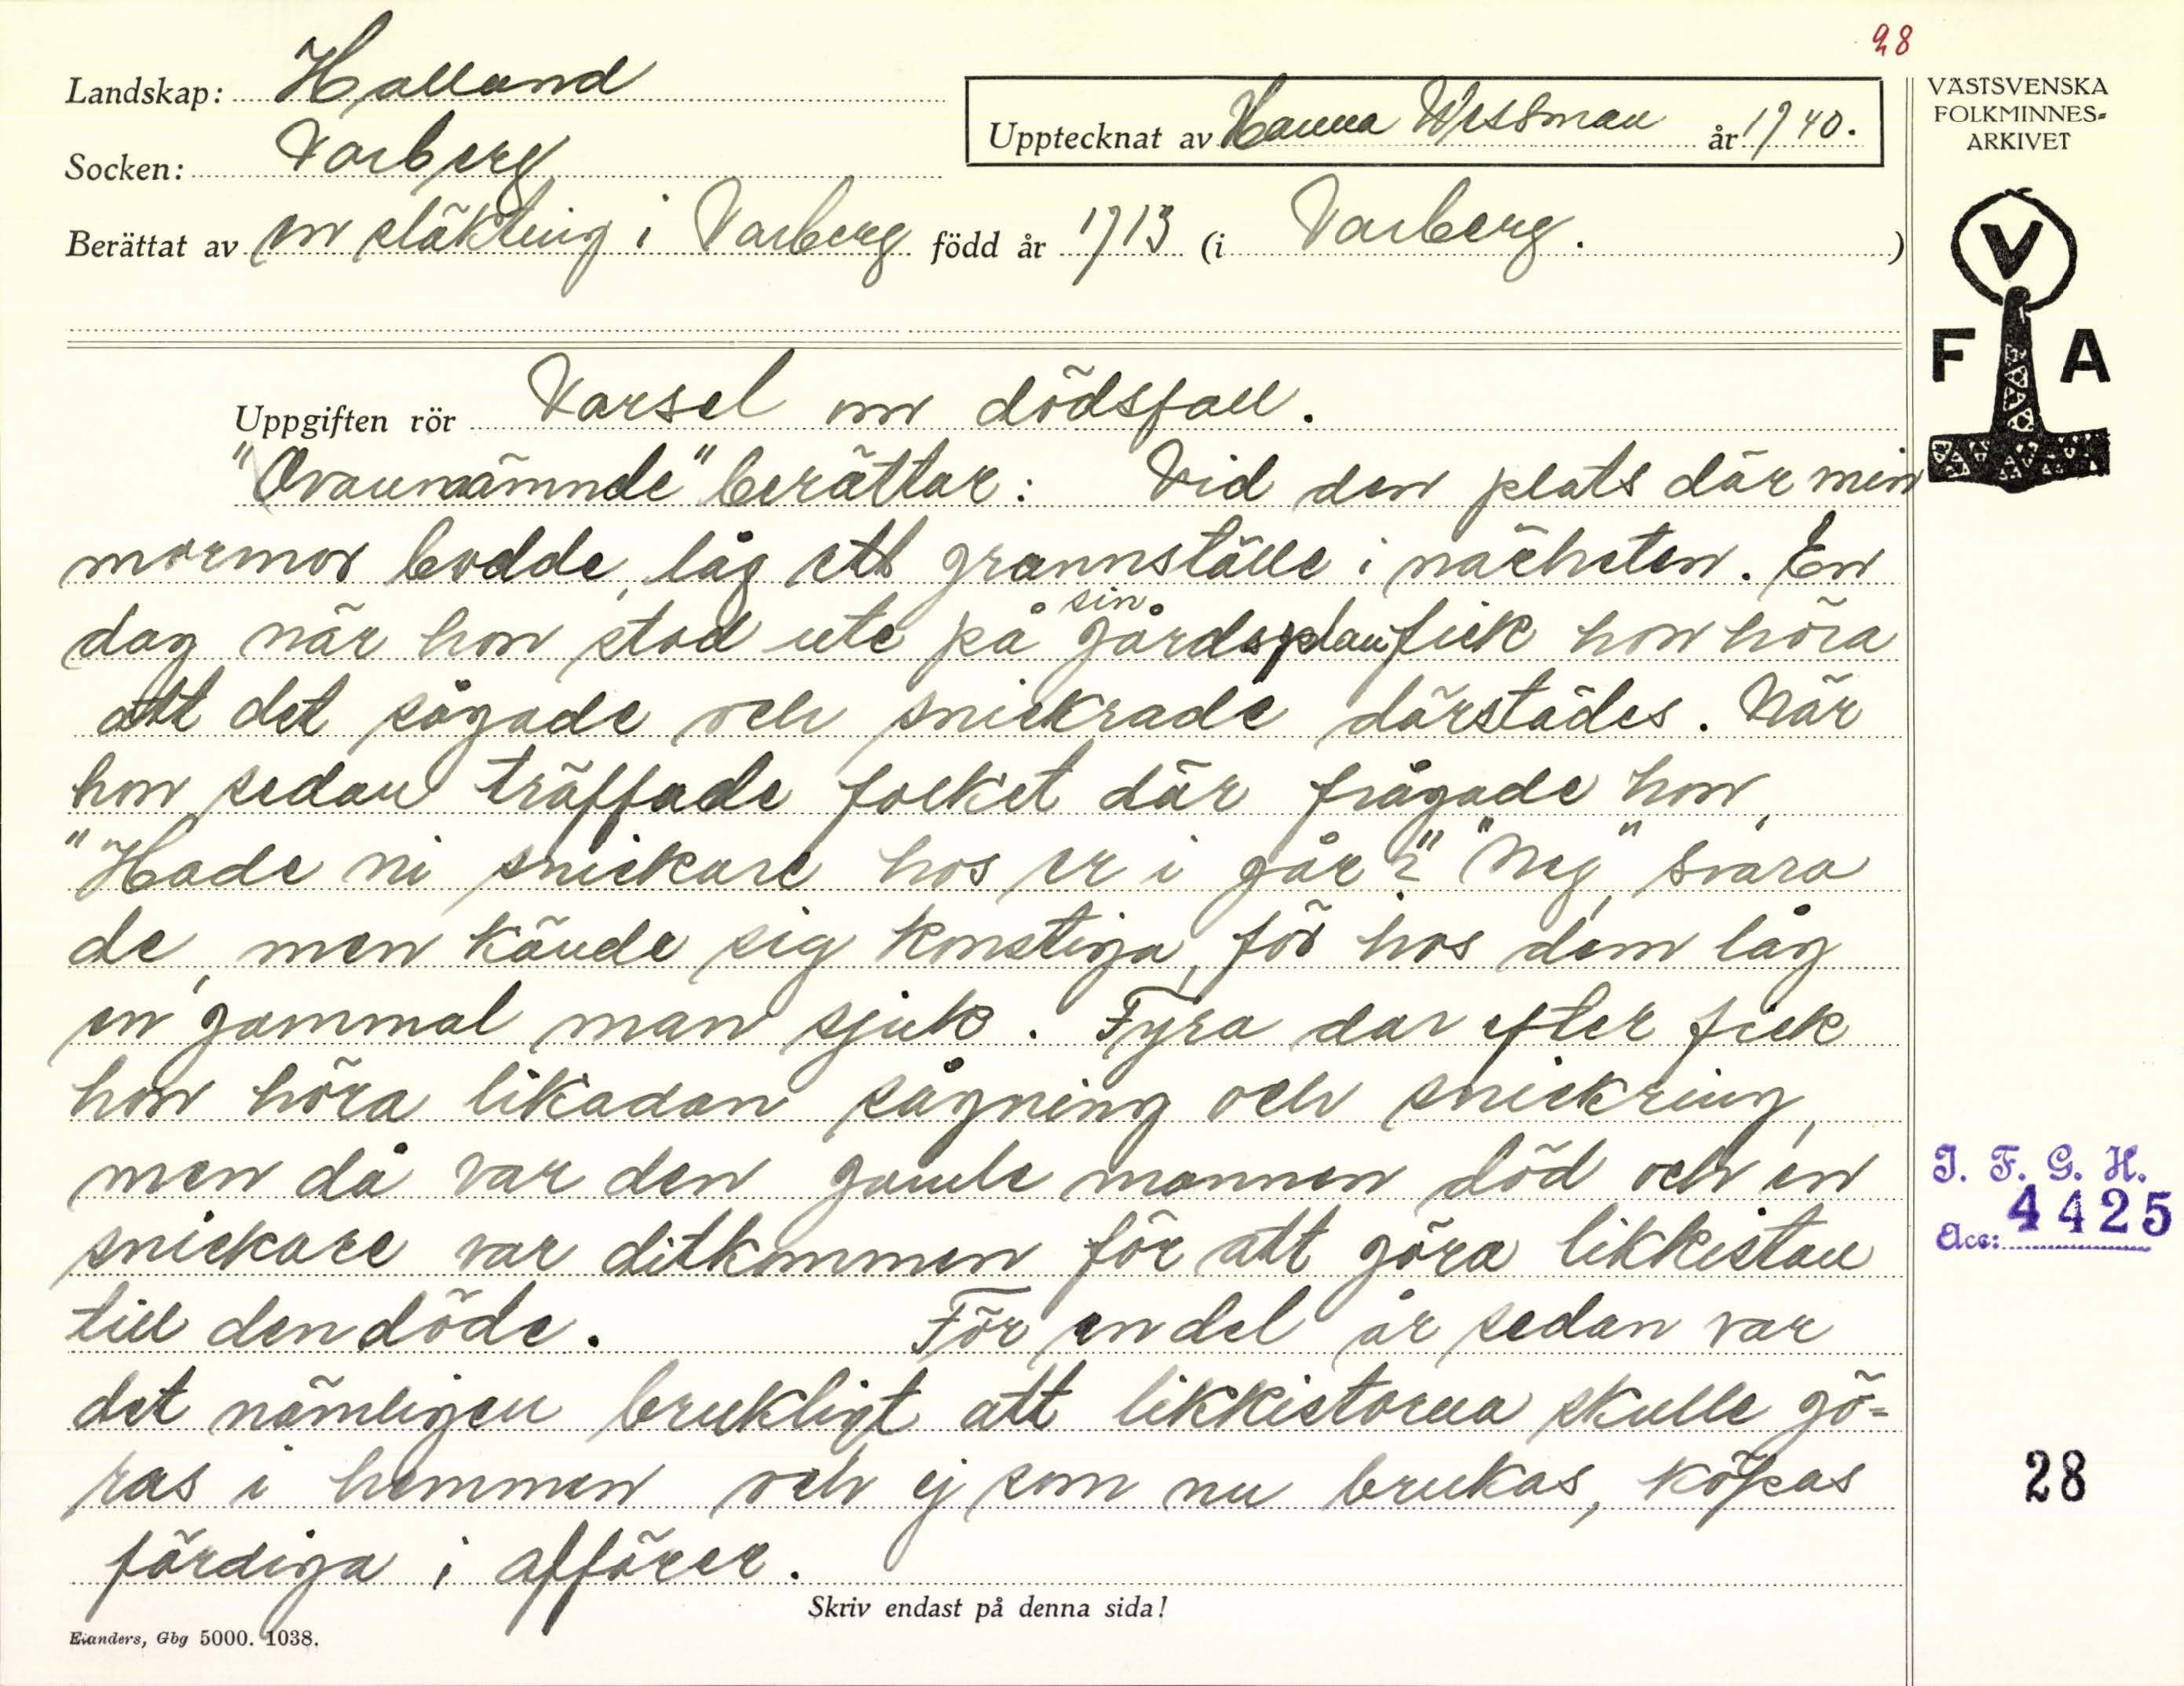 28
Landskap: Halland
Socken: Varberg
Upptecknat av Hanna Wessman år 1940.
Berättat av en släkting i Varberg född år 1913 (i Varberg.)
VÄSTSVENSKA
FOLKMINNES=
ARKIVET
V
F A
Uppgiften rör Varsel om dödsfall.
"Ovannämnde" berättar: Vid den plats där min
mormor bodde, låg ett grannställe i närheten. En
dag när hon stod ute på sin gårdsplan fick hon höra
att det sågade och snickrade därstädes. När
hon sedan träffade folket där frågade hon,
"Hade ni snickare hos er i går?" "Nej", svara
de, men kände sig konstiga, för hos dem låg
en gammal man sjuk. Fyra dar efter fick
hon höra likadan sågning och snickring,
men då var den gamle mannen död och en
snickare var ditkommen för att göra likkistan
till den döde. För en del år sedan var
det nämligen brukligt att likkistorna skulle gö=
ras i hemmen och ej som nu brukas, köpas
färdiga i affärer.
Skriv endast på denna sida!
Elanders, Gbg 5000. 1038.
I. F. G. H.
Acc: 4425
28